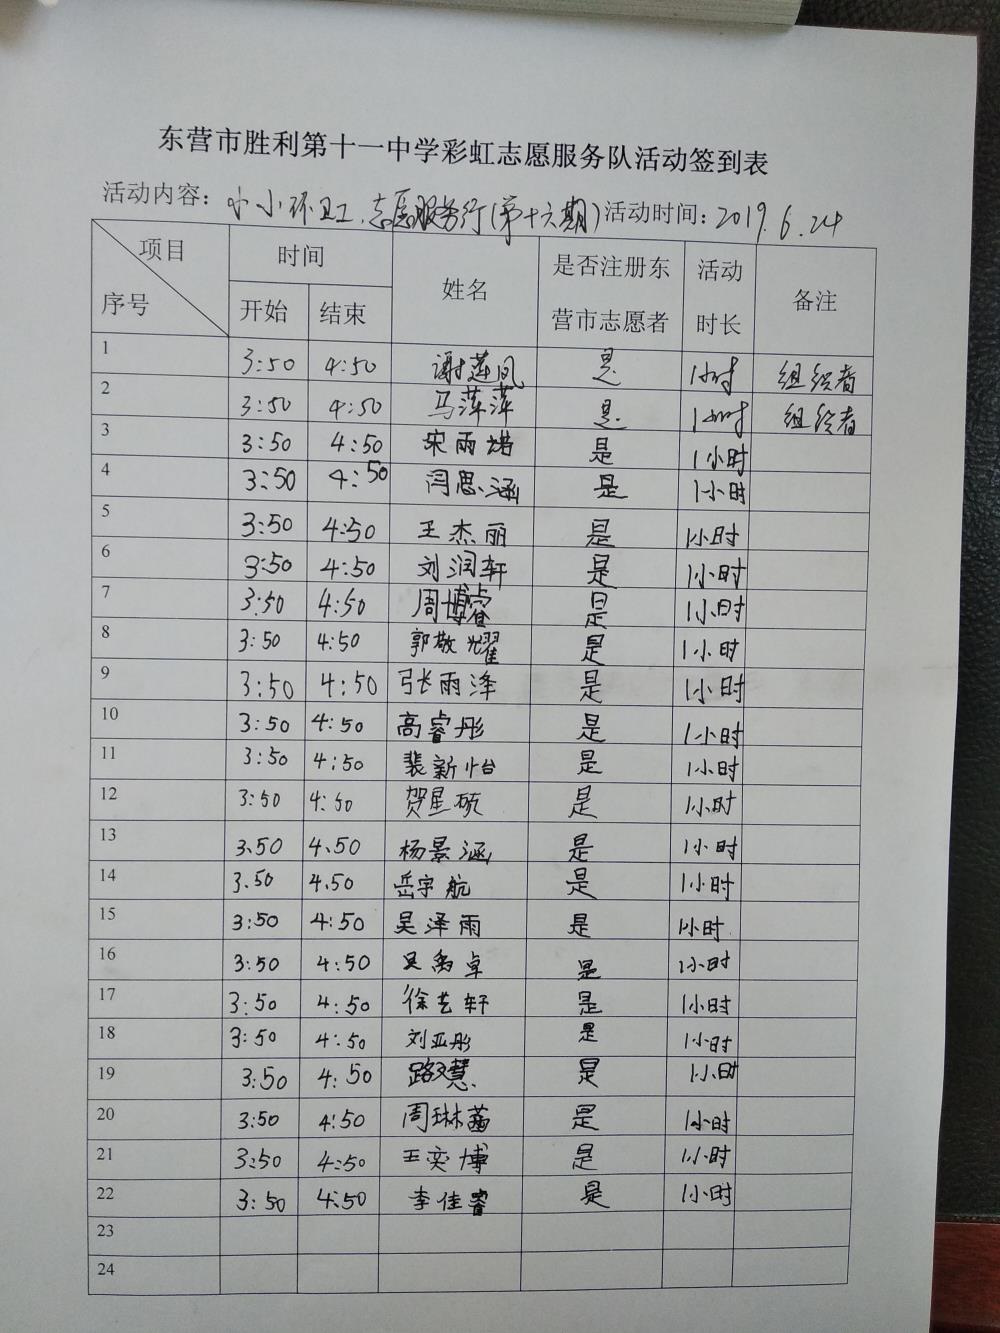 东营市胜利第十一中学彩虹志愿服务队活动签到表
活动内容：小小环卫工，志愿服务行(第十六期) 活动时间：2019.6.24
项目 序号 时间 开始 结束 姓名 是否注册东营市志愿者 活动时长 备注
1 3:50 4:50 谢莲凤 是 1小时 组织者
2 3:50 4:50 马萍萍 是 1小时 组织者
3 3:50 4:50 宋雨 是 1小时
4 3:50 4:50 闫思涵 是 1小时
5 3:50 4:50 王杰丽 是 1小时
6 3:50 4:50 刘润轩 是 1小时
7 3:50 4:50 周博睿 是 1小时
8 3:50 4:50 郭敬耀 是 1小时
9 3:50 4:50 张雨泽 是 1小时
10 3:50 4:50 高睿彤 是 1小时
11 3:50 4:50 裴新怡 是 1小时
12 3:50 4:50 贺星硕 是 1小时
13 3.50 4.50 杨景涵 是 1小时
14 3.50 4.50 岳宇航 是 1小时
15 3:50 4:50 吴泽雨 是 1小时
16 3:50 4:50 吴禹卓 是 1小时
17 3:50 4:50 徐艺轩 是 1小时
18 3:50 4:50 刘亚彤 是 1小时
19 3:50 4:50 路文慧 是 1小时
20 3:50 4:50 周琳菡 是 1小时
21 3:50 4:50 王奕博 是 1小时
22 3:50 4:50 李佳睿 是 1小时
23
24